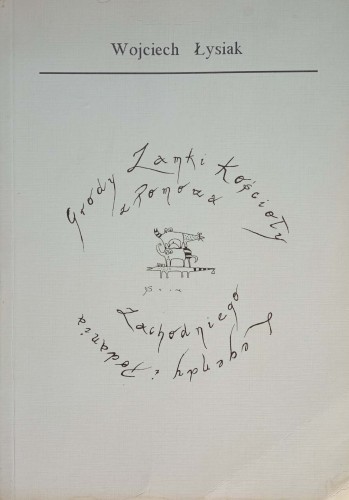 Wojciech Łysiak
Grody Zamki Kościoły
z Pomorza
Zachodniego
Legendy i Podania